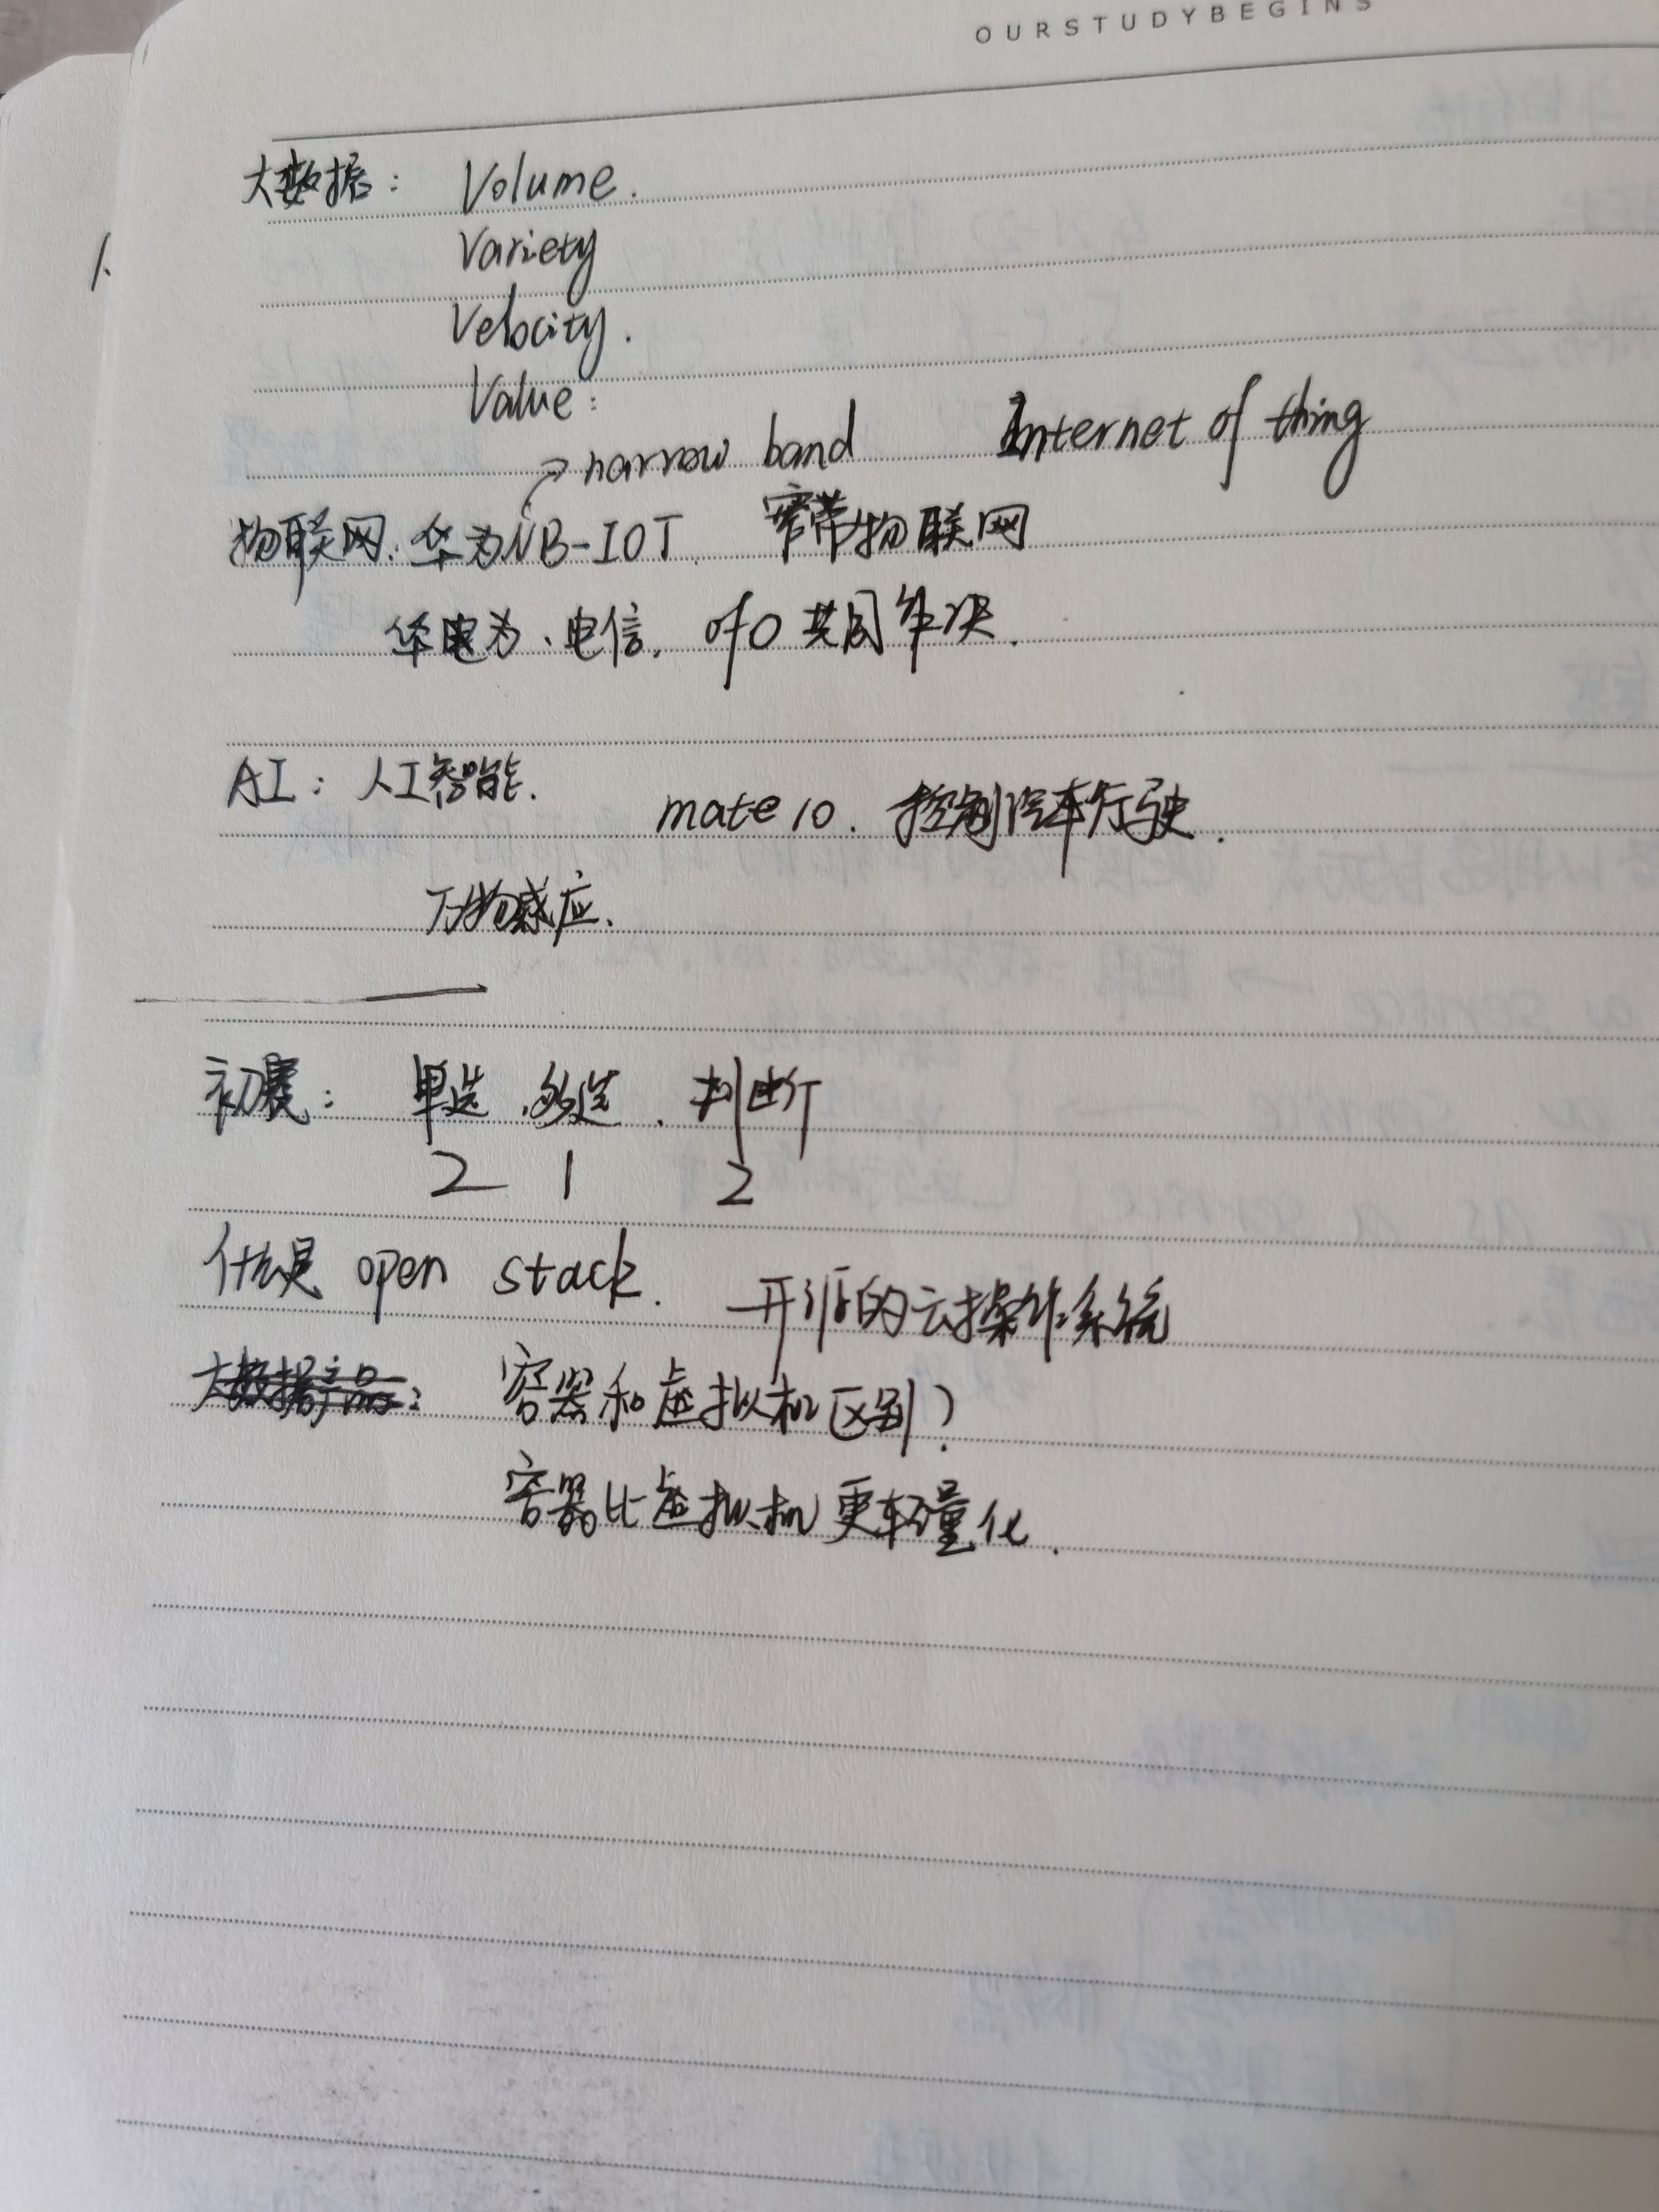 OURSTUDYBEGINS
大数据: Volume.
Variety
Velocity.
Value:
narrow band Internet of thing
物联网. 华为NB-IOT. 窄带物联网
华为、电信. ofo 共同
AI: 人工智能.
mate 10. 控制汽车行驶.
万物感应.
初赛: 单选、多选、判断
2 1 2
什么是 open stack. 开源的云操作系统
大数据产品: 容器和虚拟机区别?
容器比虚拟机更轻量化.